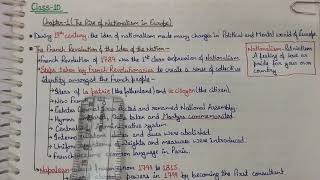 Class-10
Chapter-1 (The Rise of Nationalism in Europe)
During 19th century, the idea of nationalism made many changes in Political and Mental world of Europe.
The French Revolution & the Idea of the Nation -
French Revolution of 1789 was the 1st clear expression of Nationalism.
Nationalism: Patriotism
A feeling of love and
pride for your own
country.
Steps taken by French Revolutionaries to create a sense of collective
identity amongst the French people -
Ideas of la patrie (the fatherland) and le citoyen (the citizen)
New French
Estates General elected and renamed National Assembly
Hymns oaths taken and Martyrs commemorated
system
Internal and dues were abolished.
Uniform weights and measures were introduced.
French common language in Paris.
Napoleon 1799 to 1815.
powers in 1799 by becoming the First consultant